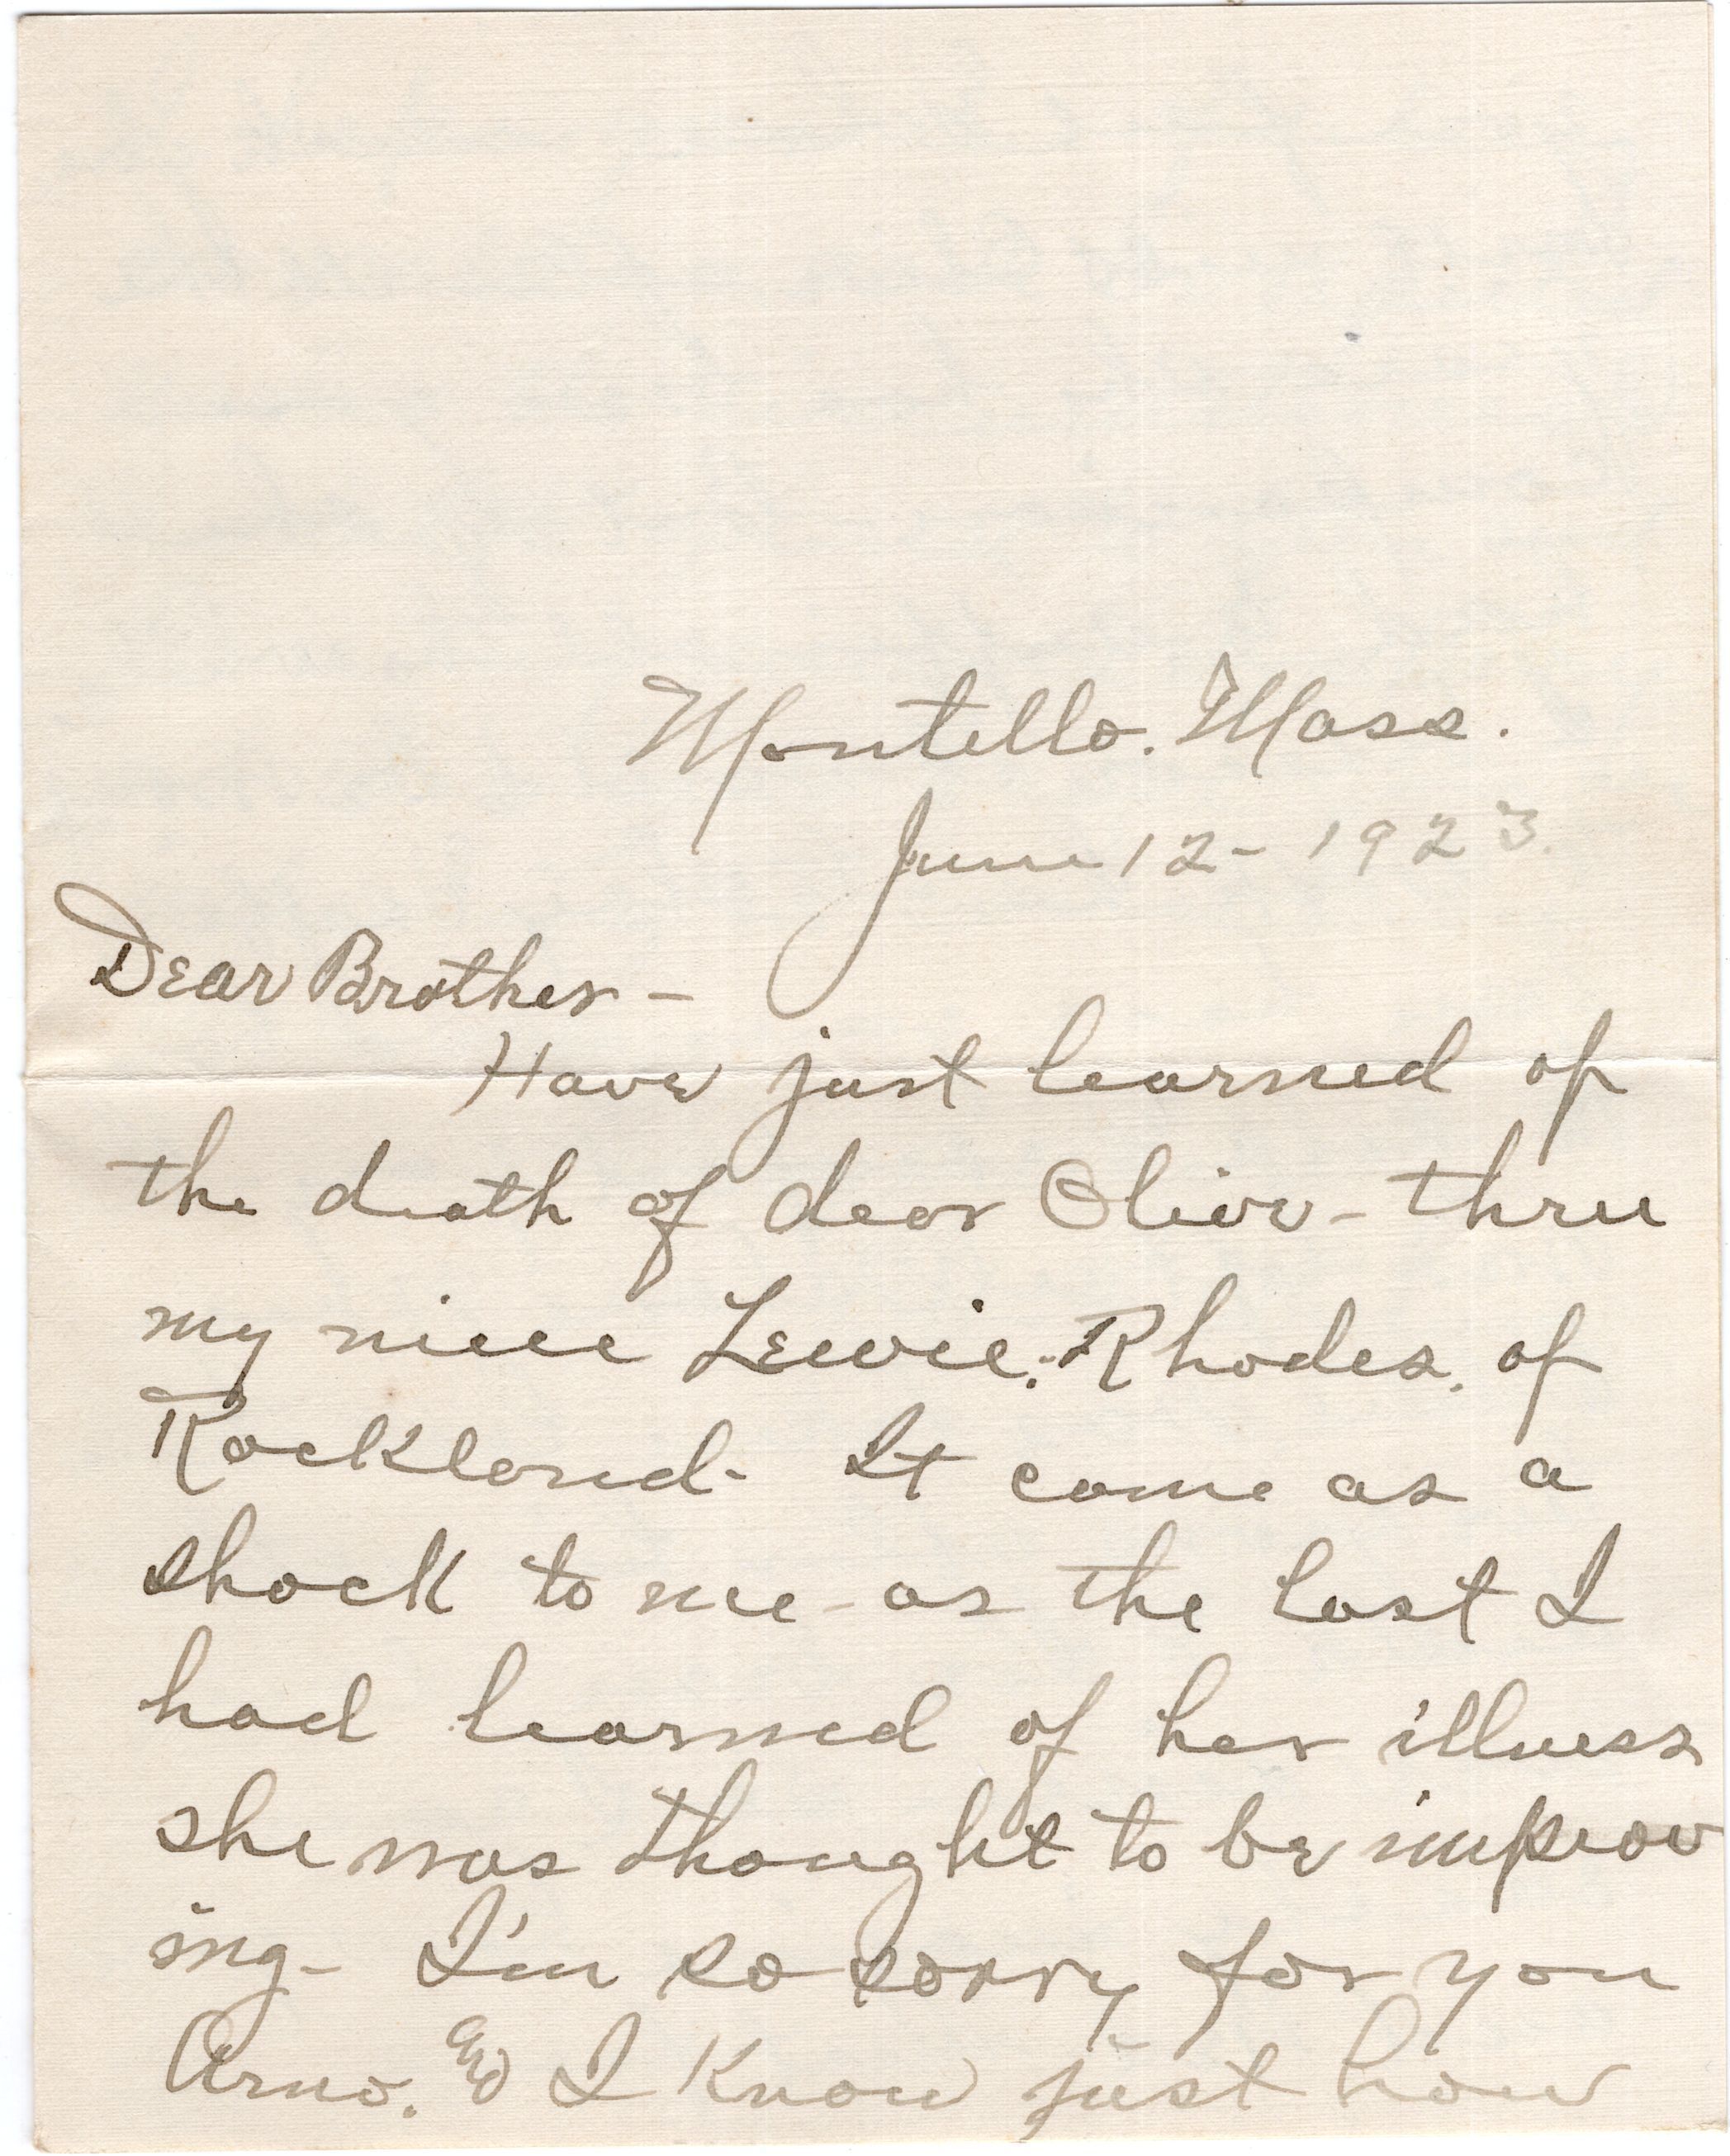 Montello. Mass.
June 12 - 1923.
Dear Brother -
Have just learned of
the death of dear Olive - thru
my niece Lewie. Rhodes. of
Rockland - It came as a
shock to me - as the last I
had learned of her illness
she was thought to be improv
ing - I'm so sorry for you
Arno. and I know just how